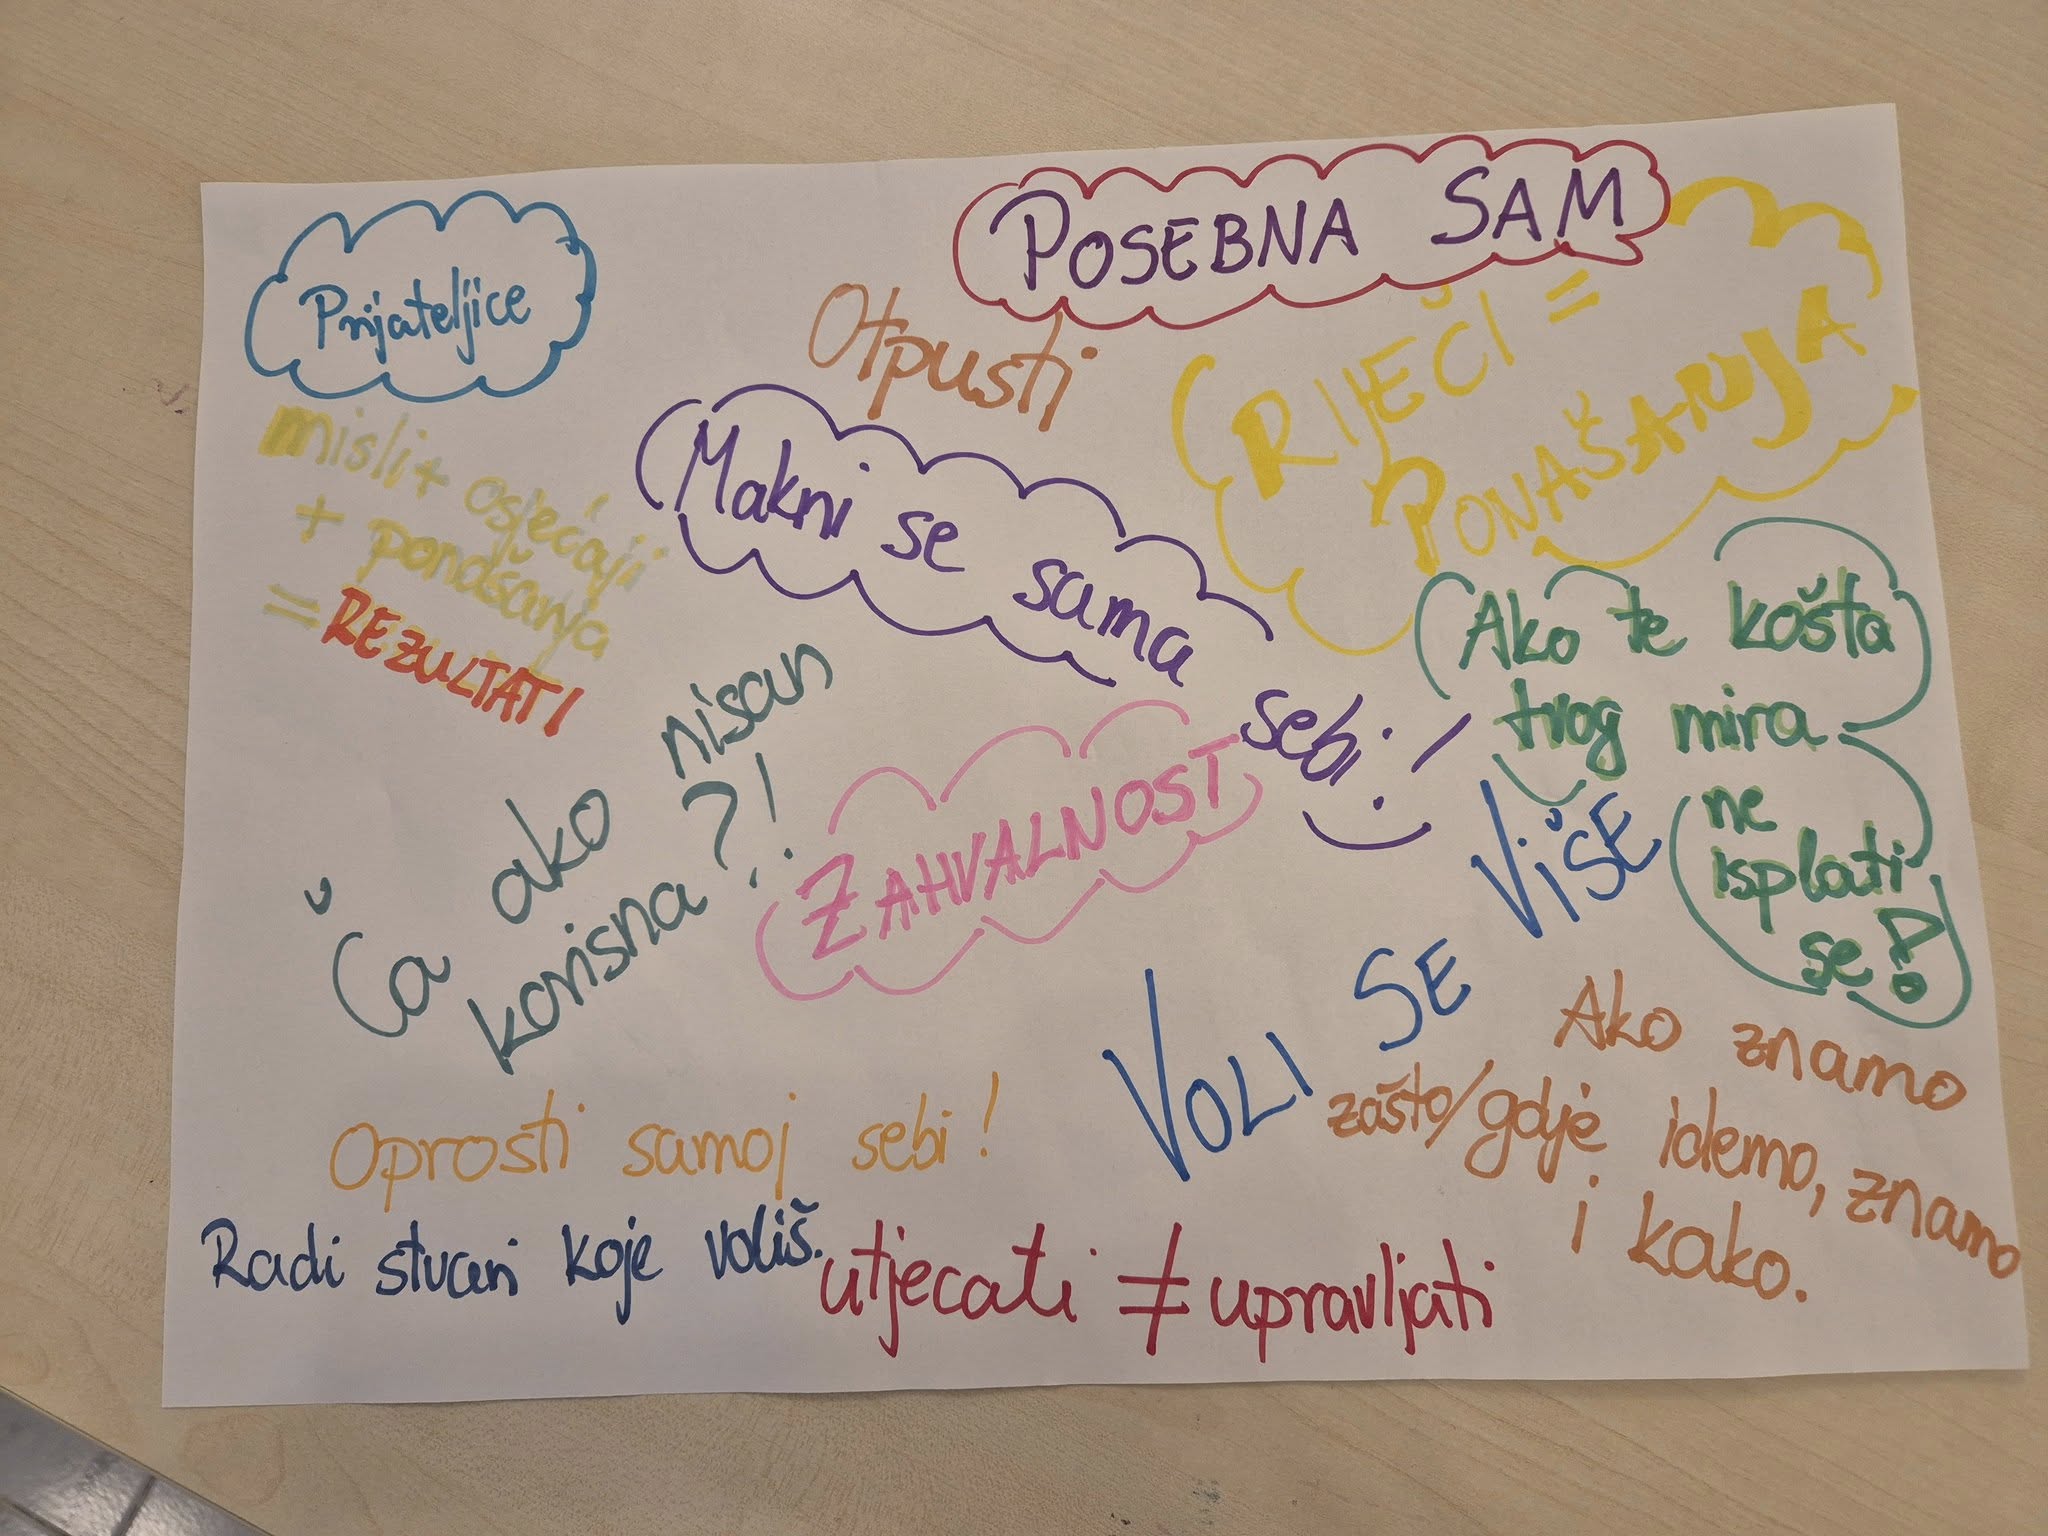 POSEBNA SAM
Prijateljice
Otpusti
RIJEČI =
PONAŠANJA
misli + osjećaji
+ ponašanja
= REZULTATI
Makni se sama
sebi :)
Ako te košta
tvog mira
ne
isplati
se!
Ča ako nisan
korisna?!
ZAHVALNOST
VOLI SE VIŠE
Ako znamo
zašto/gdje idemo, znamo
i kako.
Oprosti samoj sebi!
Radi stvari koje voliš.
utjecati ≠ upravljati